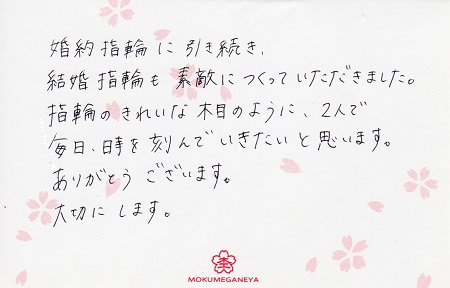 婚約指輪に引き続き、
結婚指輪も素敵につくっていただきました。
指輪のきれいな木目のように、2人で
毎日、時を刻んでいきたいと思います。
ありがとうございます。
大切にします。
MOKUMEGANEYA